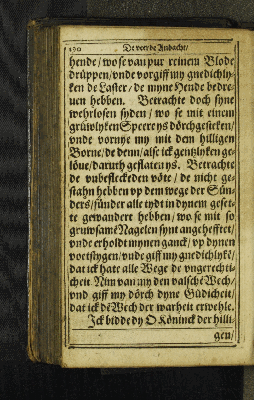 190 De veerde Andacht/
hende/ wo se van pur reinem Blode
drüppen/ vnde vorgiff my gnedichly-
ken de Laster/ de myne Hende bedre-
uen hebben. Betrachte doch syne
wehrlosen syden/ wo se mit einem
grüwlyken Speere ys dörchgesteken/
vnde vornye my mit dem hilligen
Borne/ de denn/ alse ick gentzlyken ge-
löue/ daruth geflaten ys. Betrachte
de vnbefleckeden vöte/ de nicht ge-
stahn hebben vp dem wege der Sün-
ders/ sünder alle tydt in dynem geset-
te gewandert hebben/ wo se mit so
gruwsamē Nagelen synt angehefftet/
vnde erholdt mynen ganck/ vp dynen
voetstygen/ vnde giff my gnedichlykē/
dat ick hate alle Wege de vngerechti-
cheit. Nim van my den valschē Wech/
vnd giff my dörch dyne Güdicheit/
dat ick dē Wech der warheit erwehle.
Jck bidde dy O Köninck der hilli-
gen/